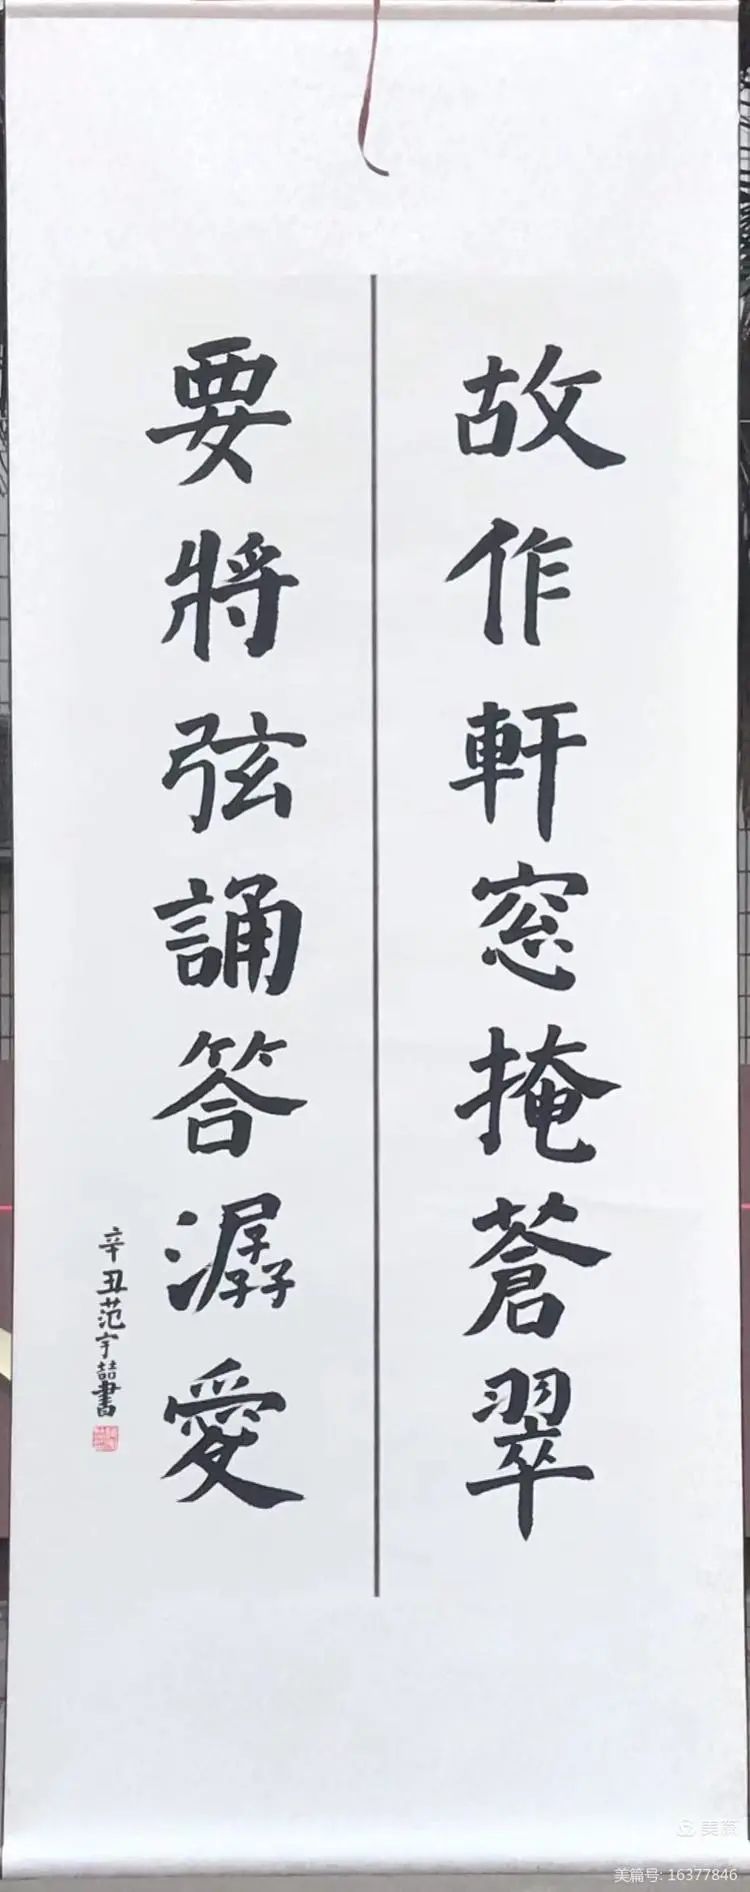 故作軒窓掩蒼翠
要將弦誦答潺爱
辛丑范宇喆書
美篇
美篇号: 16377846